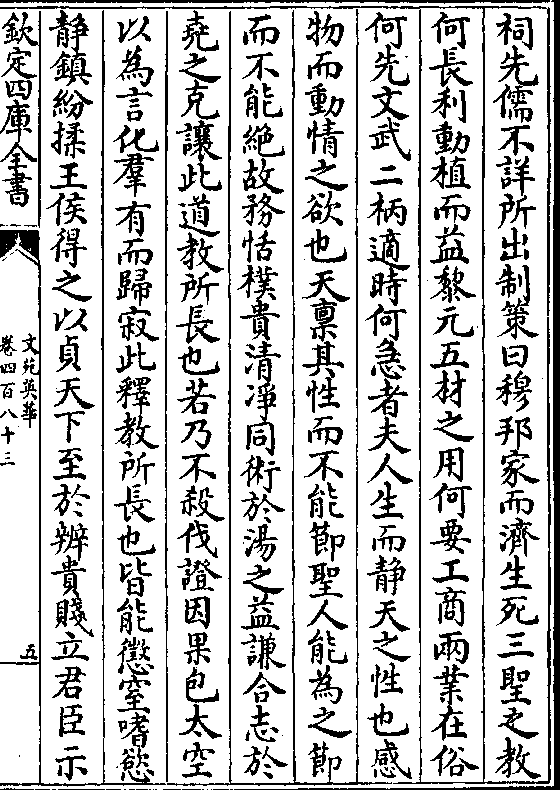 祠先儒不詳所出制策曰穆邦家而濟生死三聖之教
何長利動植而益黎元五材之用何要工商兩業在俗
何先文武二柄適時何急者夫人生而静天之性也感
物而動情之欲也天禀其性而不能節聖人能為之節
而不能絶故務恬樸貴清凈同術於湯之益謙合志於
堯之克讓此道教所長也若乃不殺伐證因果包太空
以為言化羣有而歸寂此釋教所長也皆能懲窒嗜慾
静鎮紛揉王侯得之以貞天下至於辨貴賤立君臣示
欽定四庫全書
文苑英華
卷四百八十三
五